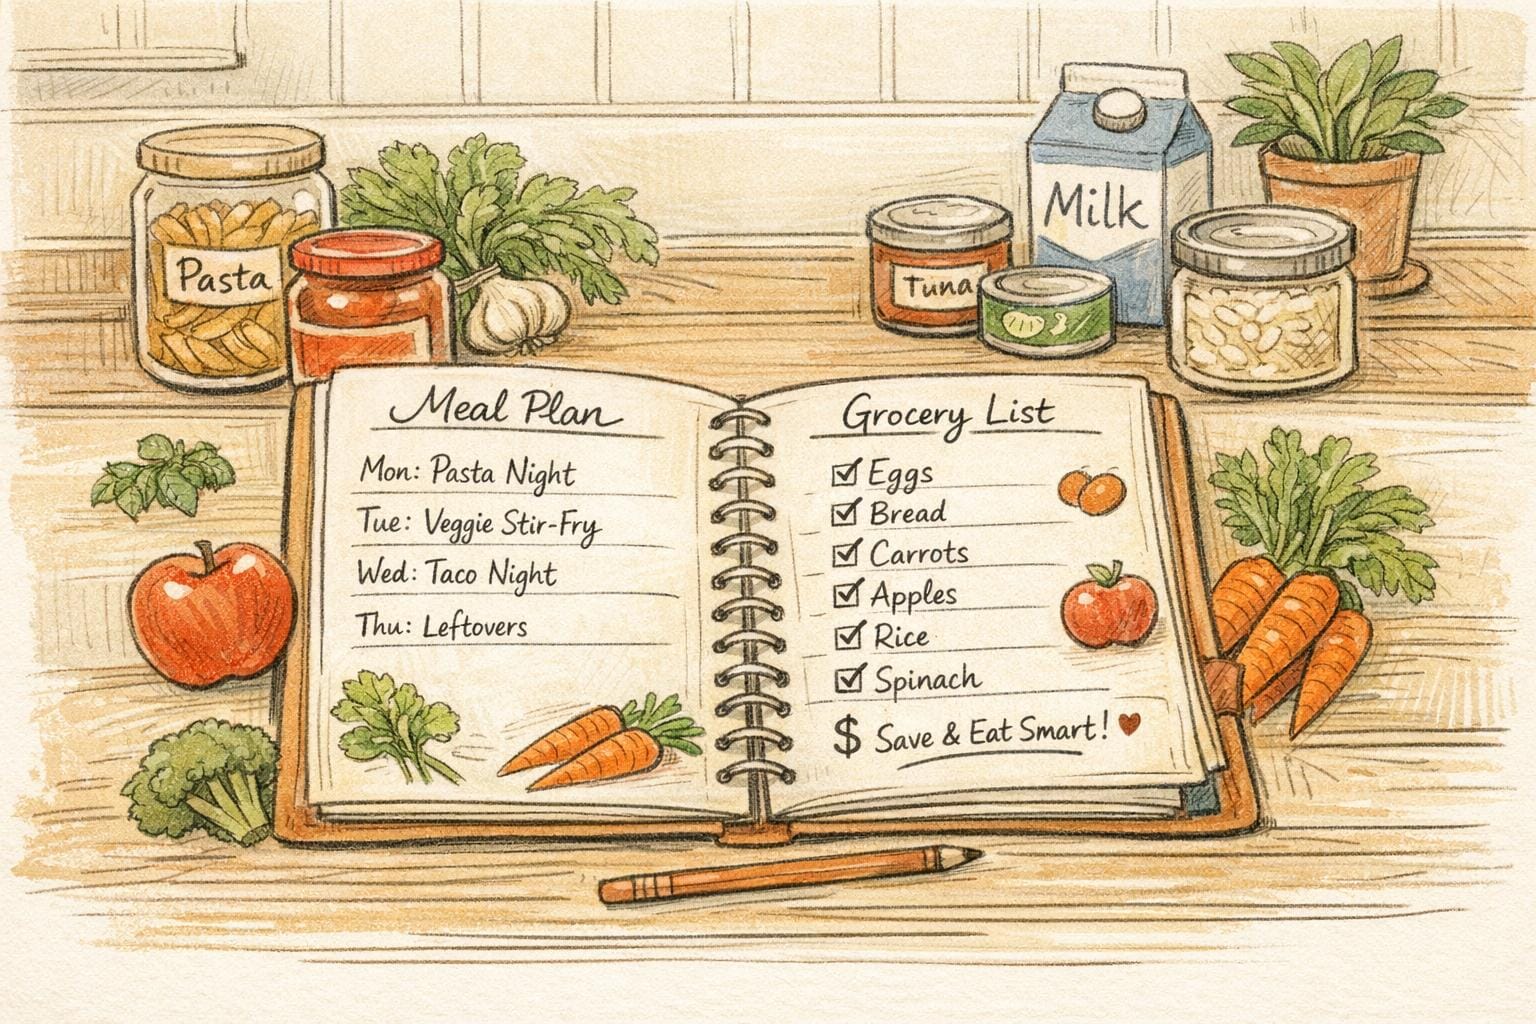 Pasta
Milk
Tuna
Meal Plan
Mon: Pasta Night
Tue: Veggie Stir-Fry
Wed: Taco Night
Thu: Leftovers
Grocery List
☑ Eggs
☑ Bread
☑ Carrots
☑ Apples
☑ Rice
☑ Spinach
$ Save & Eat Smart! ♥